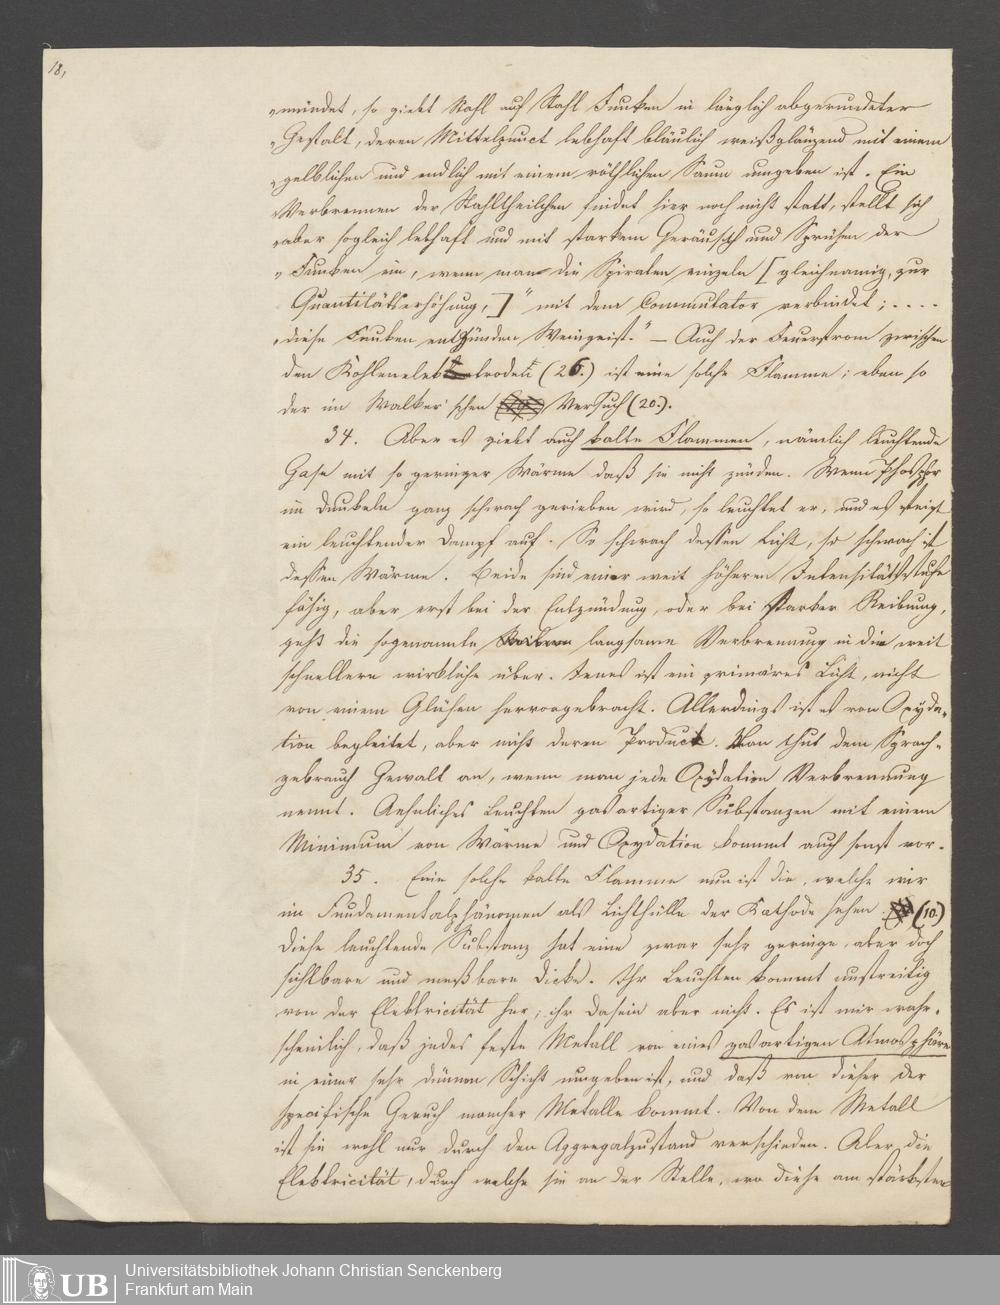 18,
„mündet, so giebt Stahl auf Stahl Funken in länglich abgerundeter
„Gestalt, deren Mittelpunct lebhaft bläulich weißglänzend mit einem
„gelblichen und endlich mit einem röthlichen Saum umgeben ist. Ein
„Verbrennen der Stahltheilchen findet hier noch nicht statt, stellt sich
„aber sogleich lebhaft und mit starkem Geräusch und Sprühen der
„Funken ein, wenn man die Spiralen einzeln [gleichnamig, zur
Quantitätserhöhung,]“ mit dem Commutator verbindet; ....
„diese Funken entzünden Weingeist.“ — Auch der Feuerstrom zwischen
den Kohlenelektroden (26.) ist eine solche Flamme; eben so
der im Walker'schen Versuch (20.).
34. Aber es giebt auch kalte Flammen, nämlich leuchtende
Gase mit so geringer Wärme daß sie nicht zünden. Wenn Phosphor
im Dunkeln ganz schwach gerieben wird, so leuchtet er, und es steigt
ein leuchtender Dampf auf. So schwach dessen Licht, so schwach ist
dessen Wärme. Beide sind einer weit höheren Intensitätsstufe
fähig, aber erst bei der Entzündung, oder bei starker Reibung,
geht die sogenannte langsame Verbrennung in die weit
schnellere wirkliche über. Jenes ist ein primäres Licht, nicht
von einem Glühen hervorgebracht. Allerdings ist es von Oxyda-
tion begleitet, aber nicht deren Product. Man thut dem Sprach-
gebrauch Gewalt an, wenn man jede Oxydation Verbrennung
nennt. Aehnliches Leuchten gasartiger Substanzen mit einem
Minimum von Wärme und Oxydation kommt auch sonst vor.
35. Eine solche kalte Flamme nun ist die, welche wir
im Fundamentalphänomen als Lichthülle der Kathode sehen (10.)
Diese leuchtende Substanz hat eine zwar sehr geringe, aber doch
sichtbare und meßbare Dicke. Ihr Leuchten kommt unstreitig
von der Elektricität her; ihr Dasein aber nicht. Es ist mir wahr-
scheinlich, daß jedes feste Metall von einer gasartigen Atmosphäre
in einer sehr dünnen Schicht umgeben ist, und daß von dieser der
specifische Geruch mancher Metalle kommt. Von dem Metall
ist sie wohl nur durch den Aggregatzustand verschieden. Aber die
Elektricität, durch welche sie an der Stelle, wo diese am stärksten
UB
Universitätsbibliothek Johann Christian Senckenberg
Frankfurt am Main